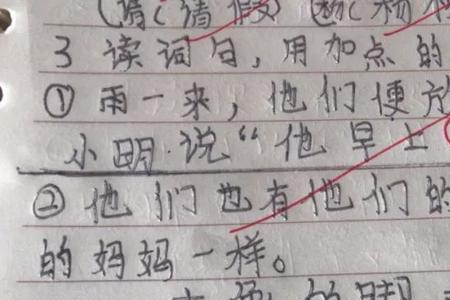 请(请假) 杨(杨
3 读词句,用加点的
① 雨一来,他们便放
小明·说“他早上
② 他们也有他们的
的妈妈一样。
的脚